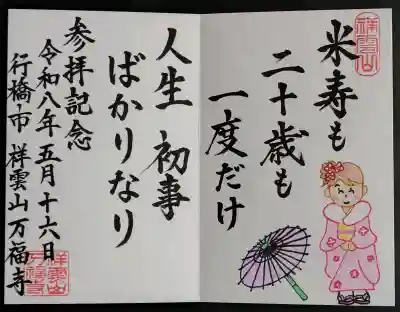 米寿も
二十歳も
一度だけ
人生 初事
ばかりなり
参拝記念
令和八年五月十六日
行橋市 祥雲山万福寺
祥雲山
祥雲山
万福寺